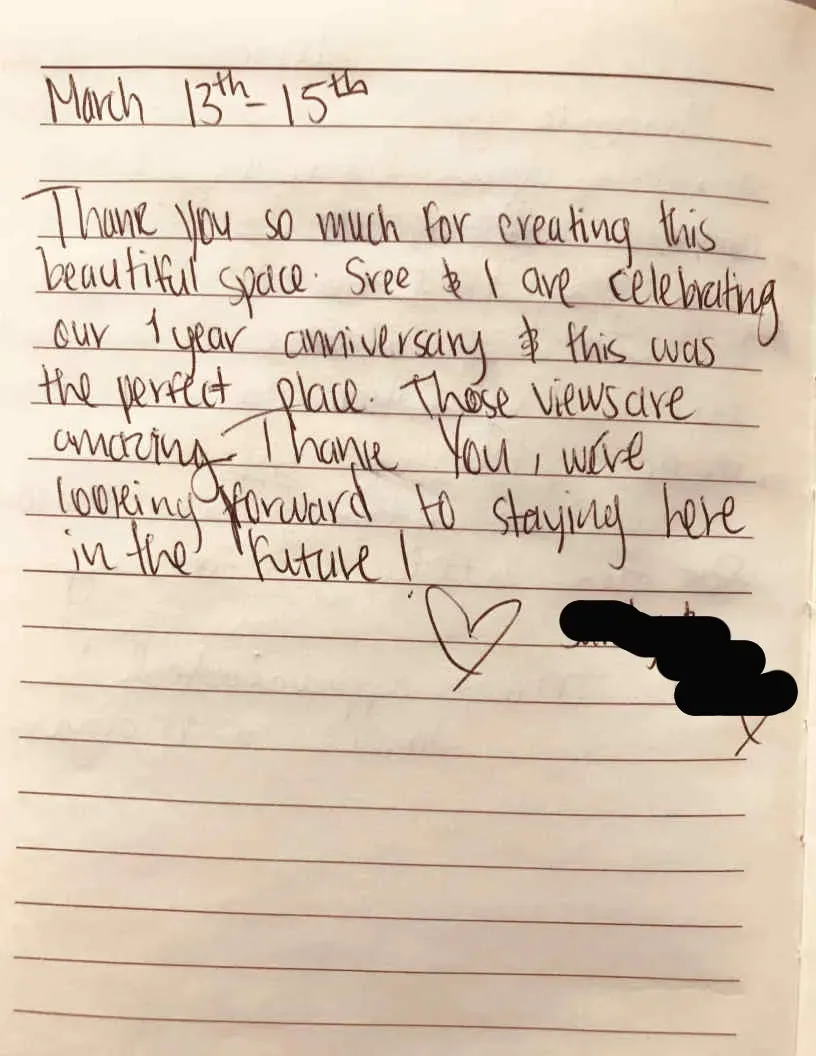 March 13th - 15th
Thank you so much for creating this
beautiful space. Sree & I are celebrating
our 1 year anniversary & this was
the perfect place. Those views are
amazing. Thank You, we're
looking forward to staying here
in the future!